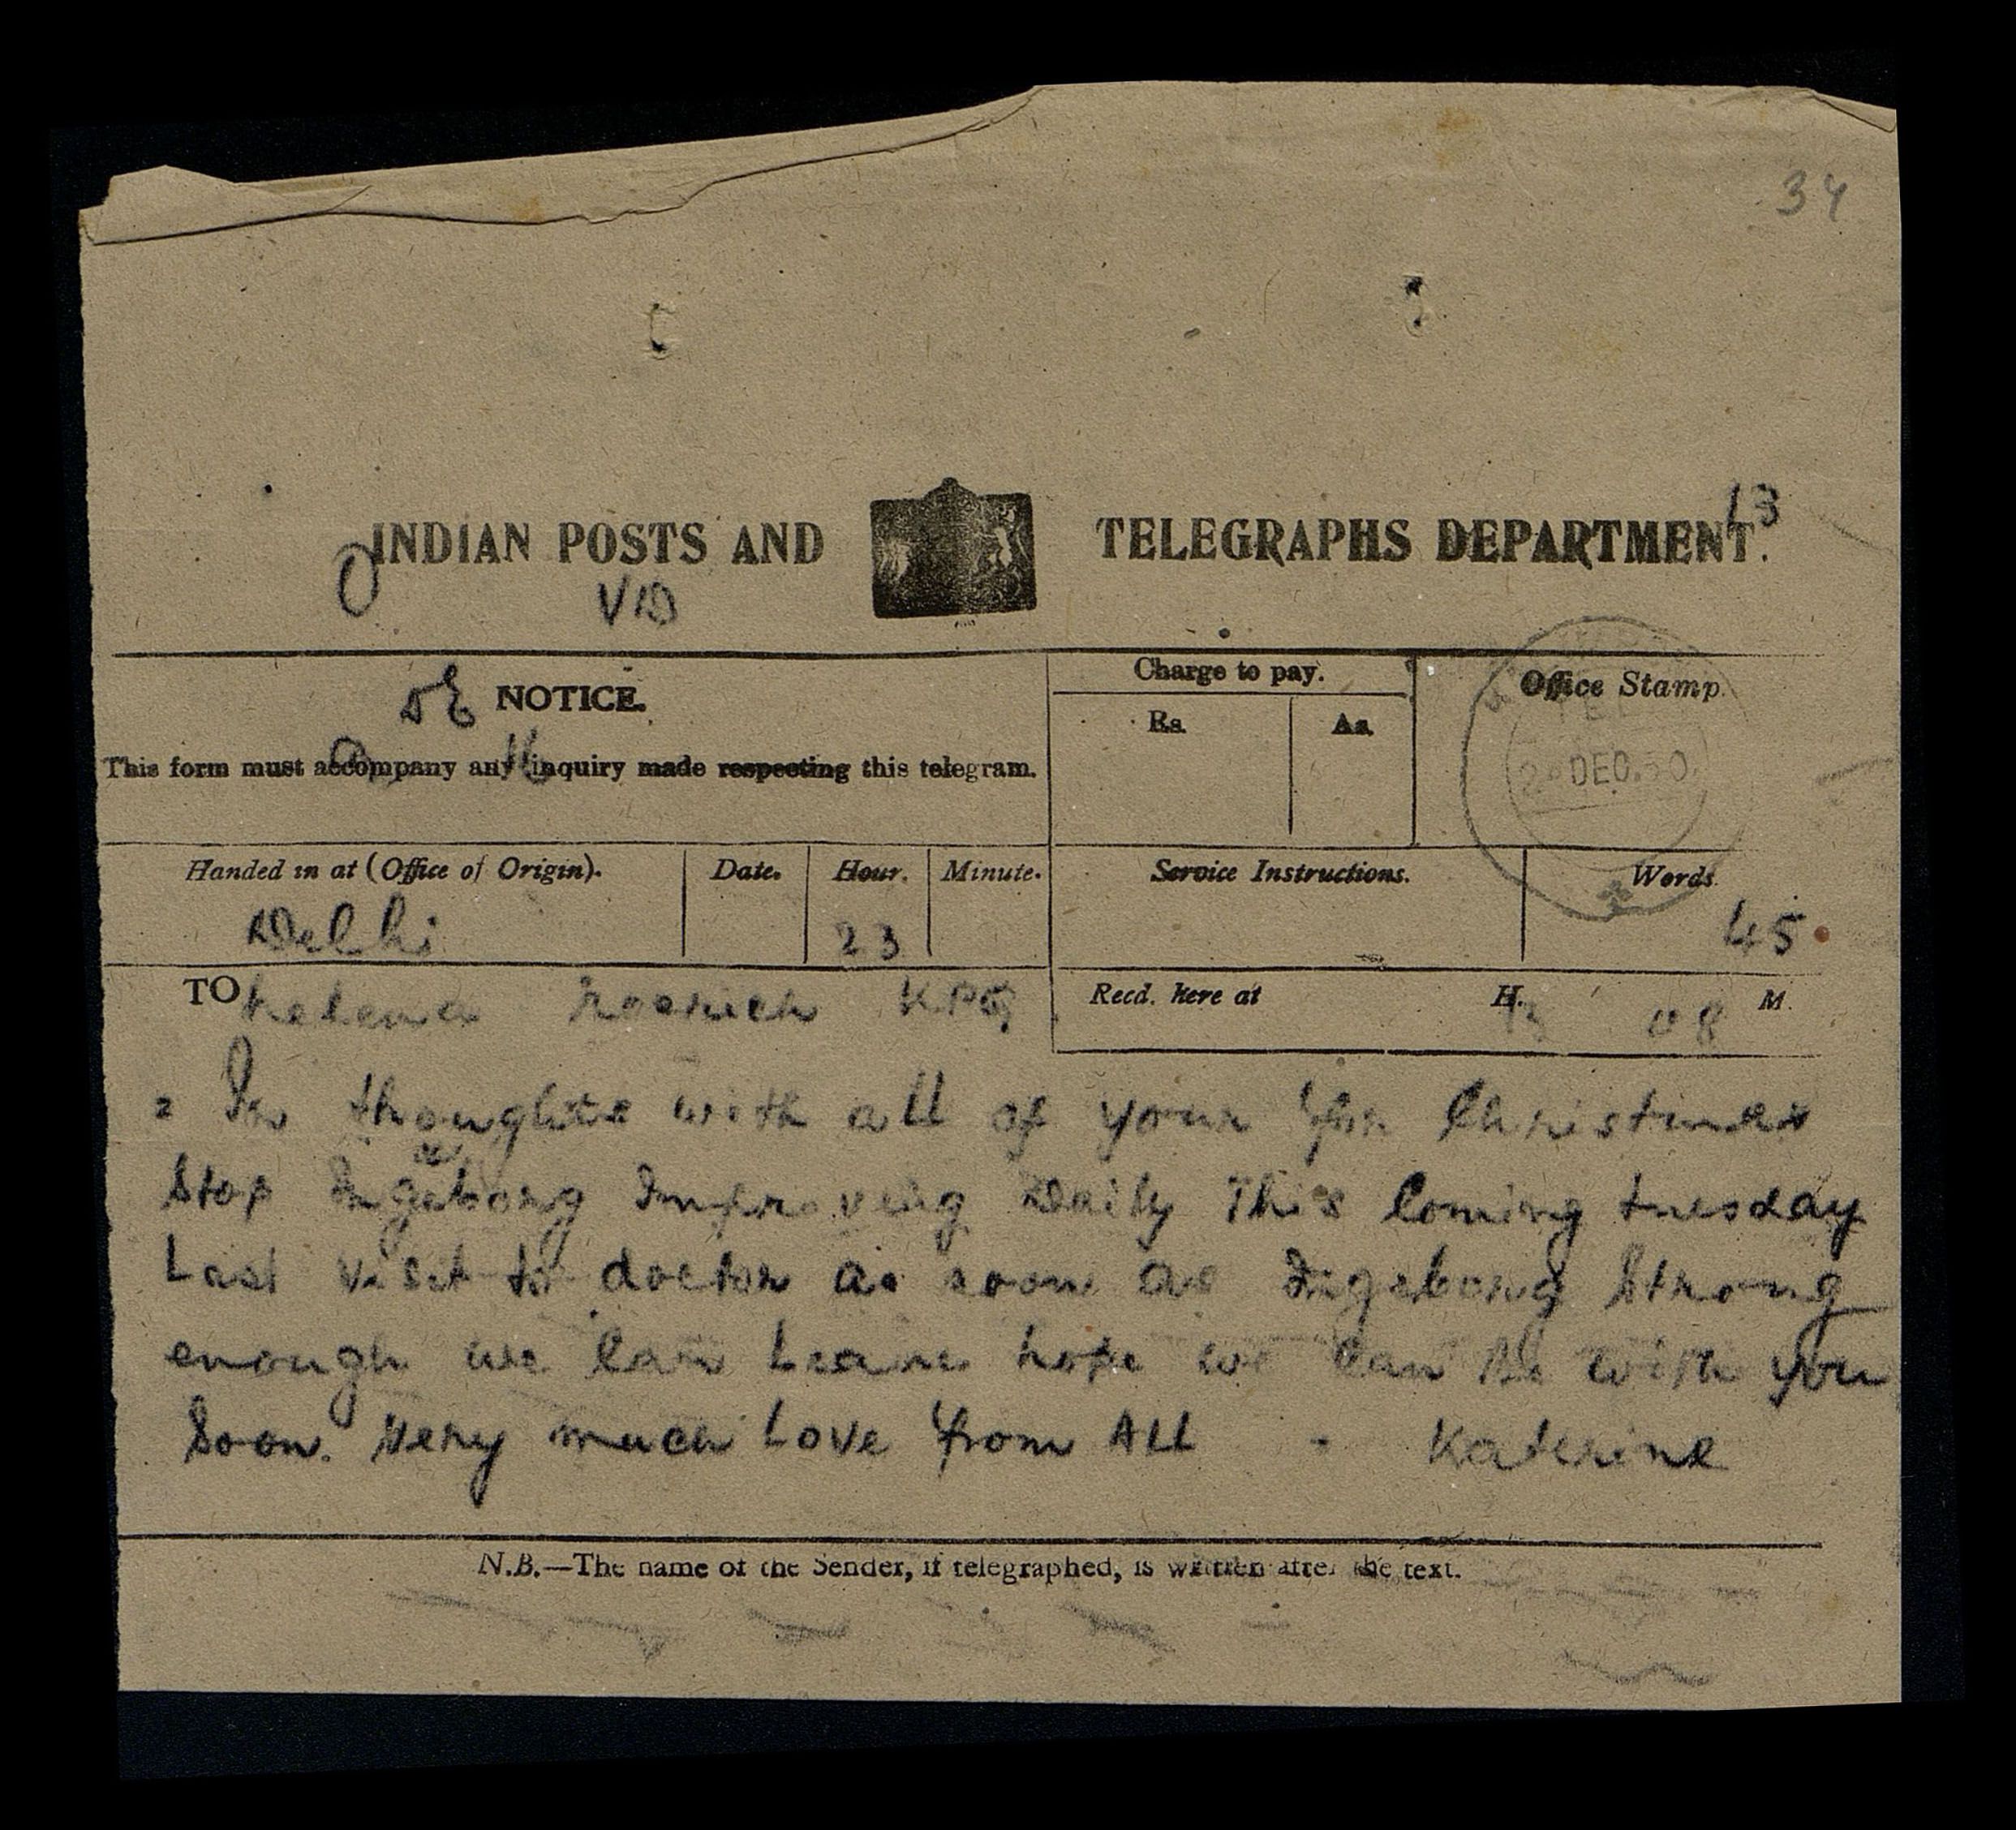 34
INDIAN POSTS AND TELEGRAPHS DEPARTMENT.
13
O
NOTICE.
This form must accompany any inquiry made respecting this telegram.
Charge to pay.
Rs. As.
Office Stamp.
DEC.50.
Handed in at (Office of Origin). Date. Hour. Minute. Service Instructions. Words.
Delhi 23 45
TO helena roerich KPG Recd. here at H. M.
08
= In thoughts with all of your for Christmas
Stop Ingeborg Improving Daily This Coming tuesday
Last visit to doctor as soon as Ingeborg Strong
enough we Can Leave hope we Can Be with you
Soon. Very much Love from All - Katerine
N.B.—The name of the Sender, if telegraphed, is written after the text.